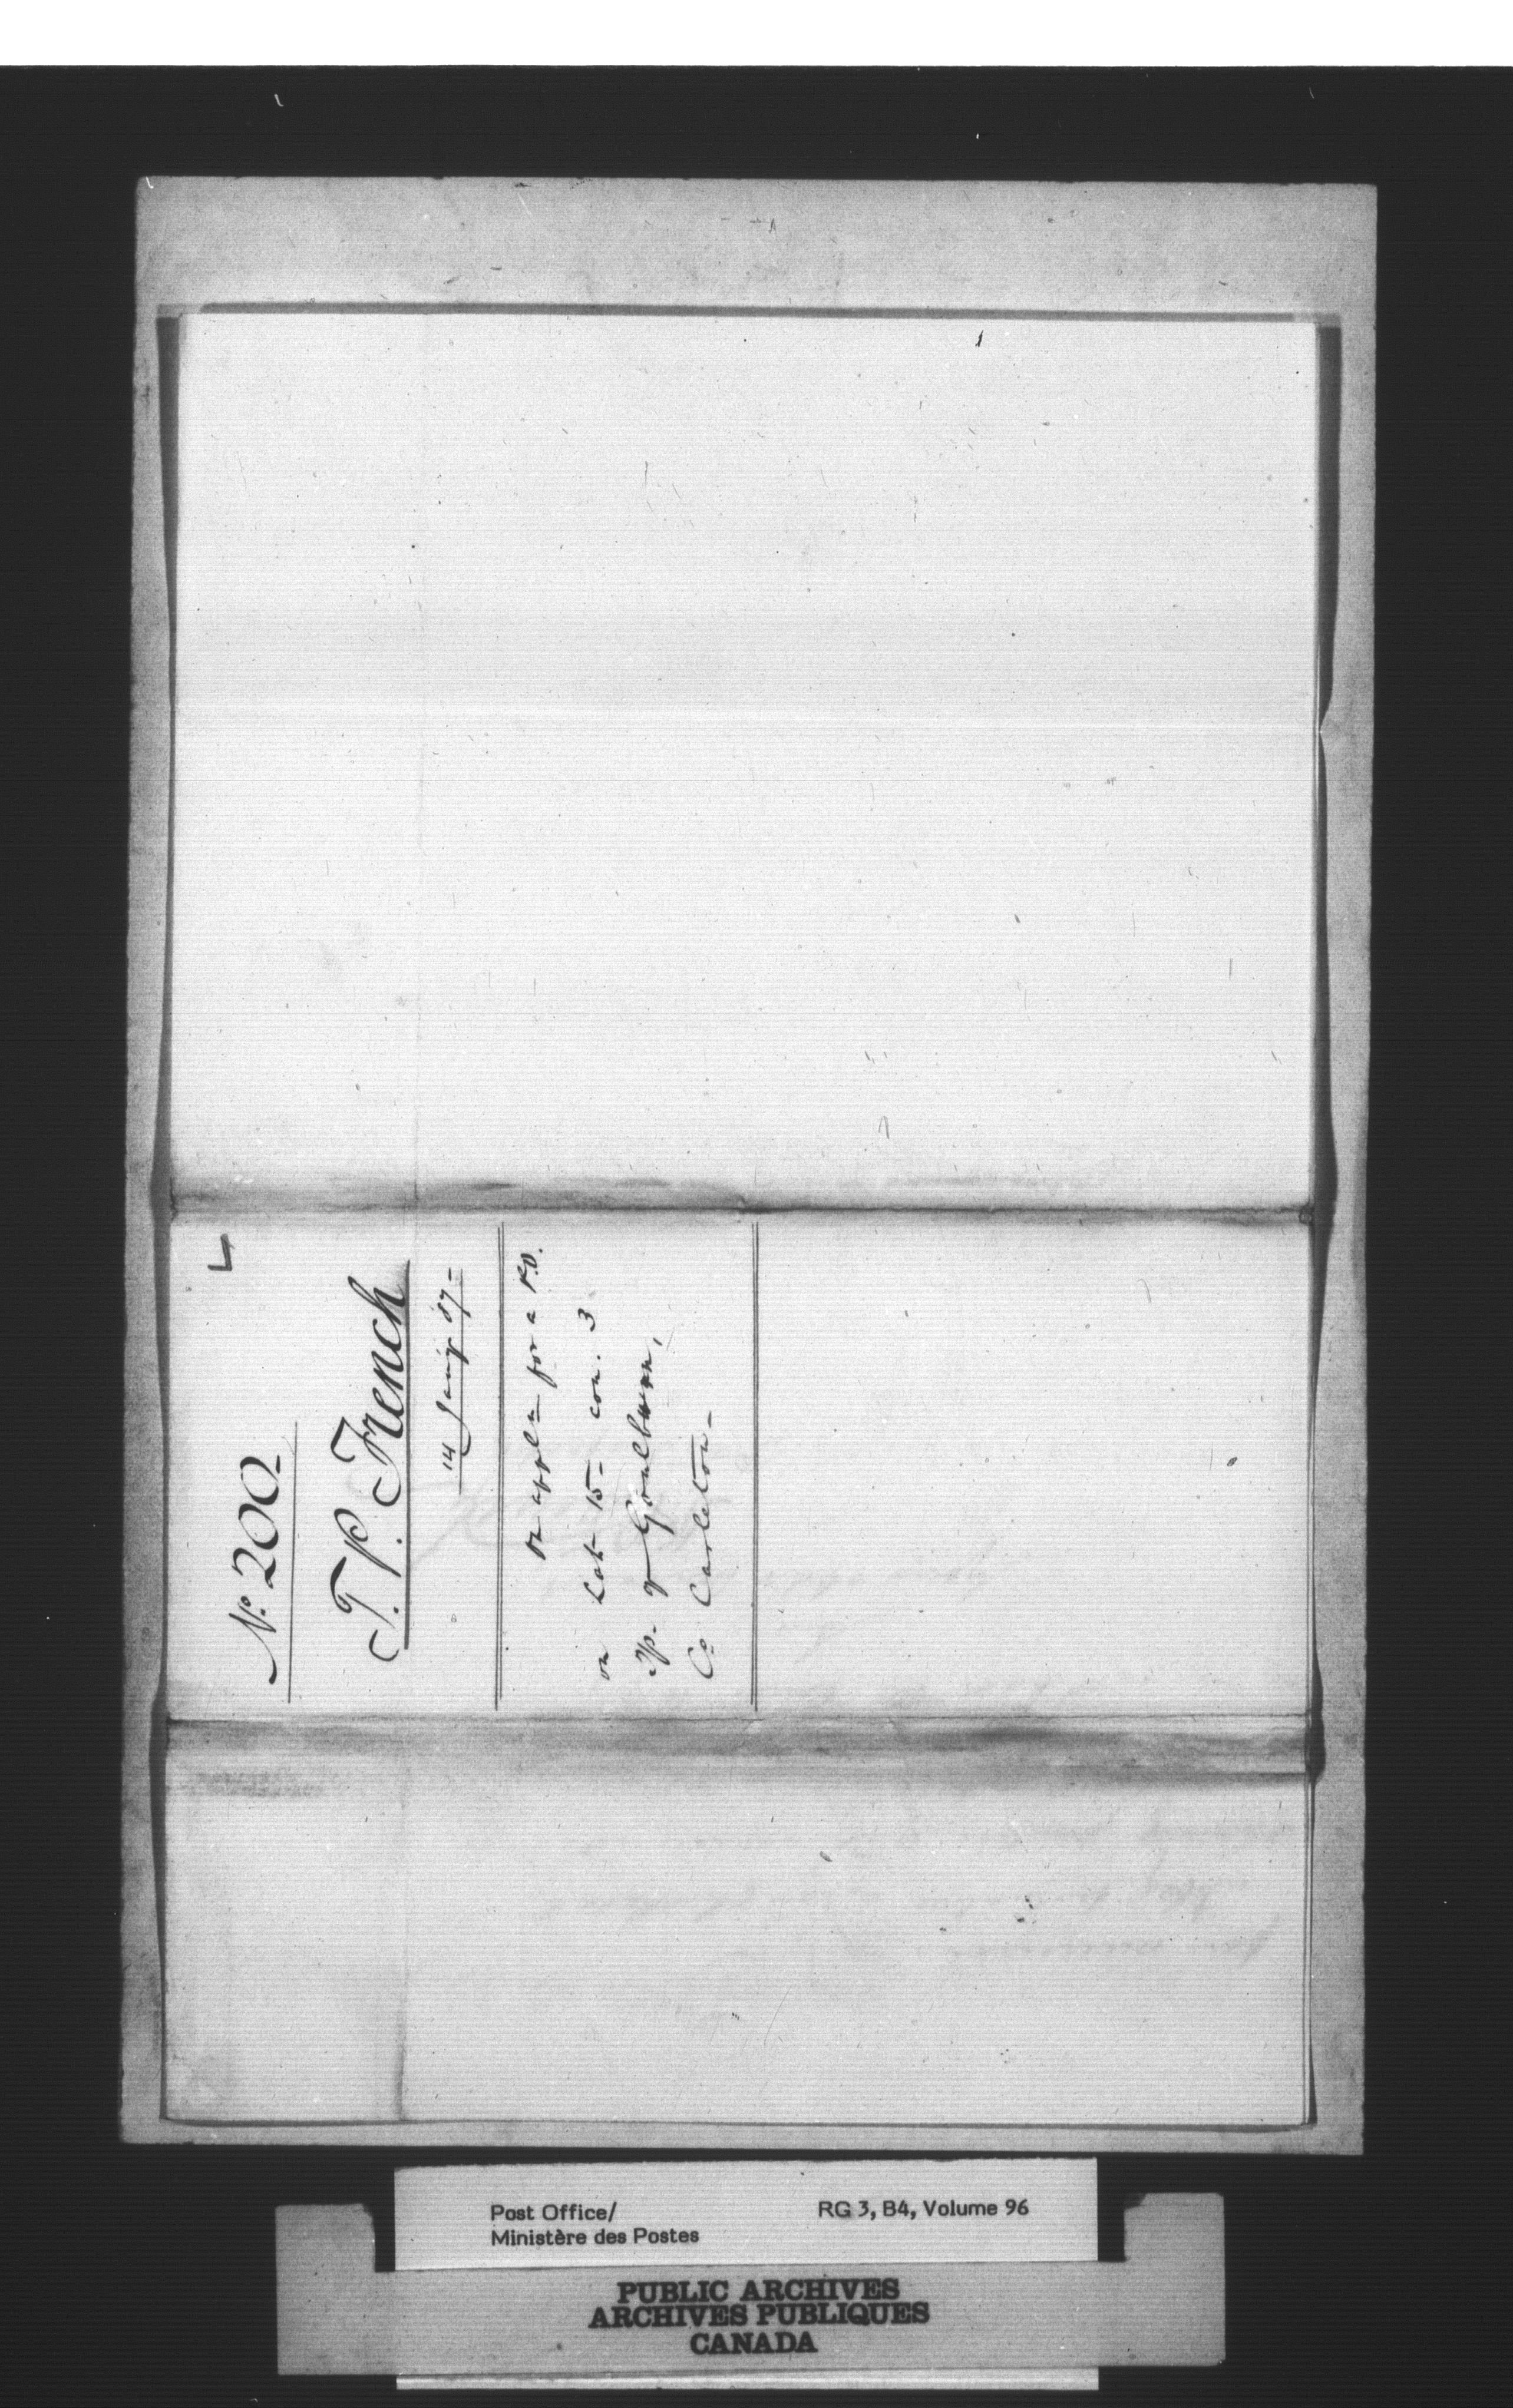 L
No. 200
T.P. French
14 Jany 87
on appln for a P.O.
on Lot 15 - con. 3
Tp. of Goulburn,
Co Carleton -
Post Office/
Ministère des Postes
RG 3, B4, Volume 96
PUBLIC ARCHIVES
ARCHIVES PUBLIQUES
CANADA